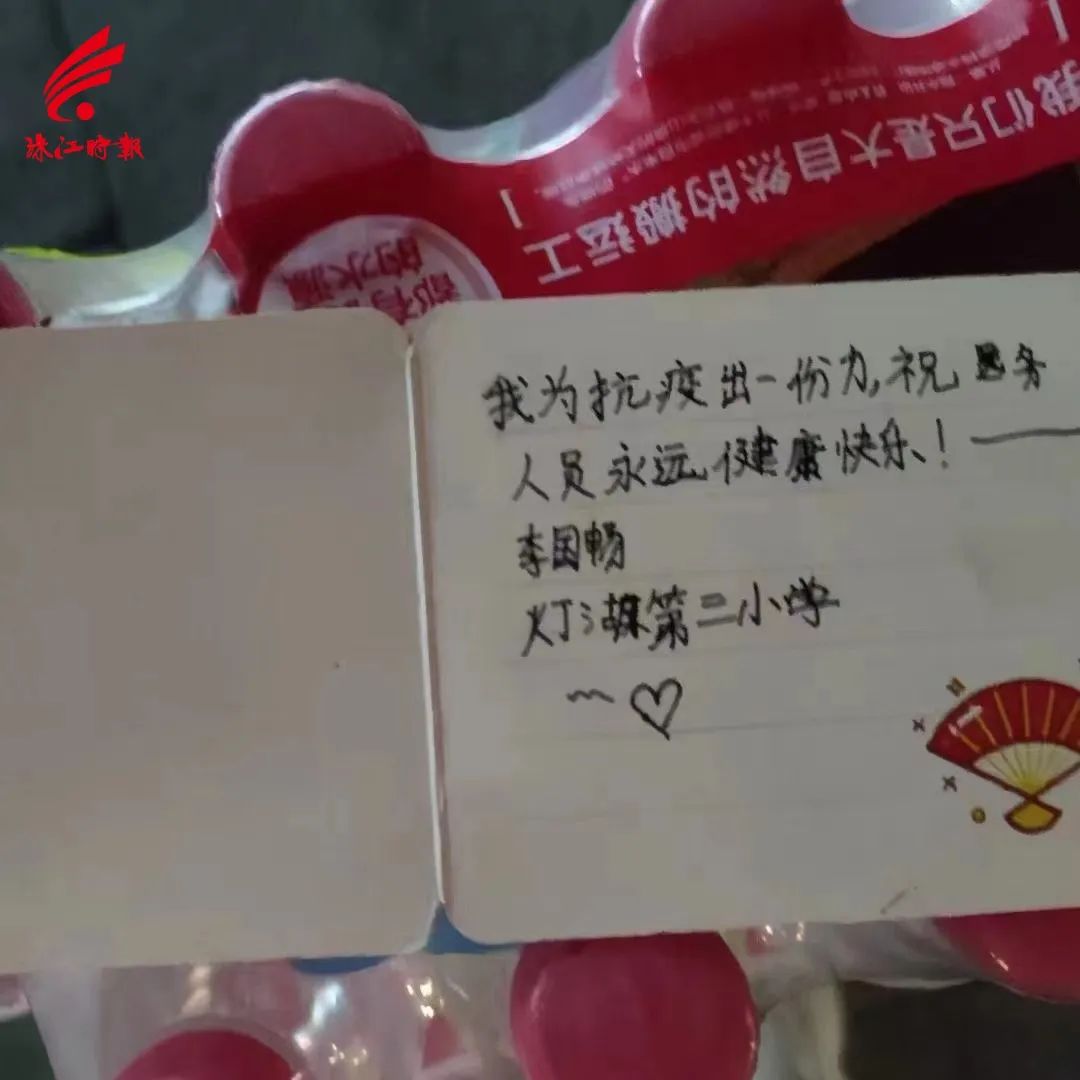 珠江時報
我们只是大自然的搬运工
都有
的水源
我为抗疫出一份力,祝医务
人员永远健康快乐!——
李国畅
灯湖第二小学